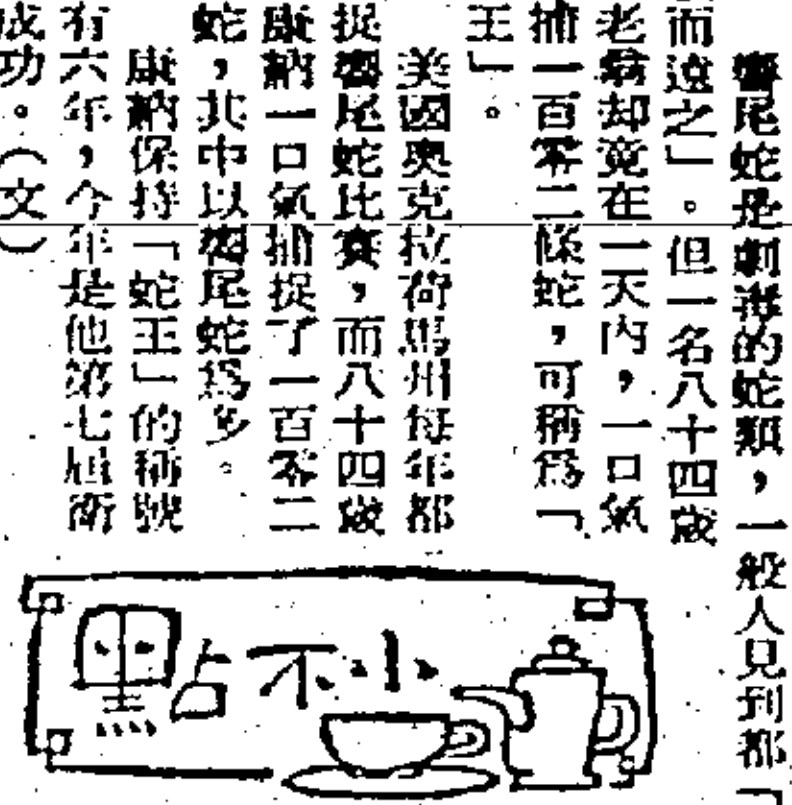 響尾蛇是劇毒的蛇類，一般人見到都「
而遠之」。但一名八十四歲
老翁却竟在一天內，一口氣
捕一百零二條蛇，可稱爲「
王」。
美國奧克拉荷馬州每年都
捉響尾蛇比賽，而八十四歲
康納一口氣捕捉了一百零二
蛇，其中以響尾蛇爲多。
康納保持「蛇王」的稱號
有六年，今年是他第七屆衛
成功。（文）
小不點